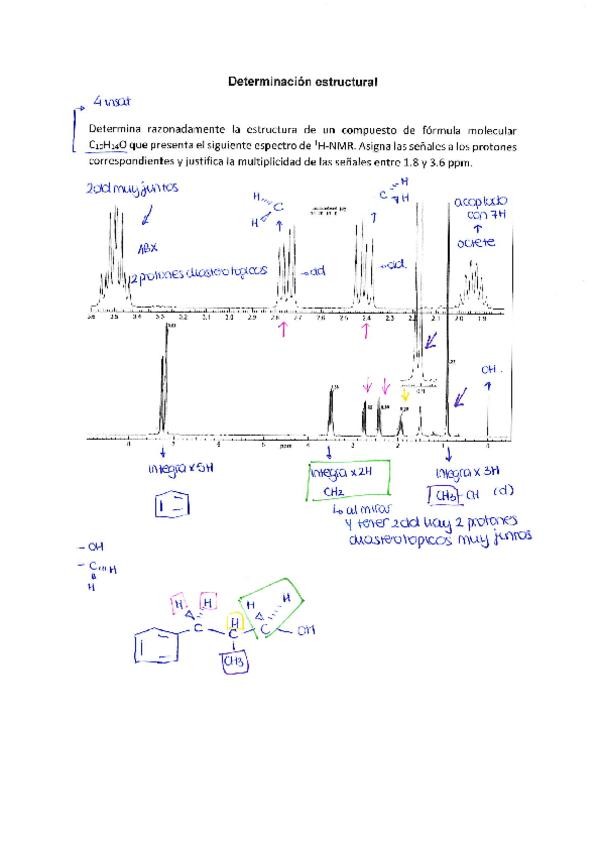 Determinación estructural
4 insat
Determina razonadamente la estructura de un compuesto de fórmula molecular
C₁₀H₁₄O que presenta el siguiente espectro de ¹H-NMR. Asigna las señales a los protones
correspondientes y justifica la multiplicidad de las señales entre 1.8 y 3.6 ppm.
2dd muy juntos
ABX
2 protones diasterotopicos
H
C
H
dd
C
H
7H
dd
acoplado
con 7H
octete
3.6 3.5 3.4 3.3 3.2 3.1 3.0 2.9 2.8 2.7 2.6 2.5 2.4 2.3 2.2 2.1 2.0 1.9
OH
ppm
integra x 5H
integra x 2H
CH2
integra x 3H
CH3-CH (d)
al mirar
y tener 2dd hay 2 protones
diasterotopicos muy juntos
-OH
-C H
H
H H H H H
C C C OH
CH3